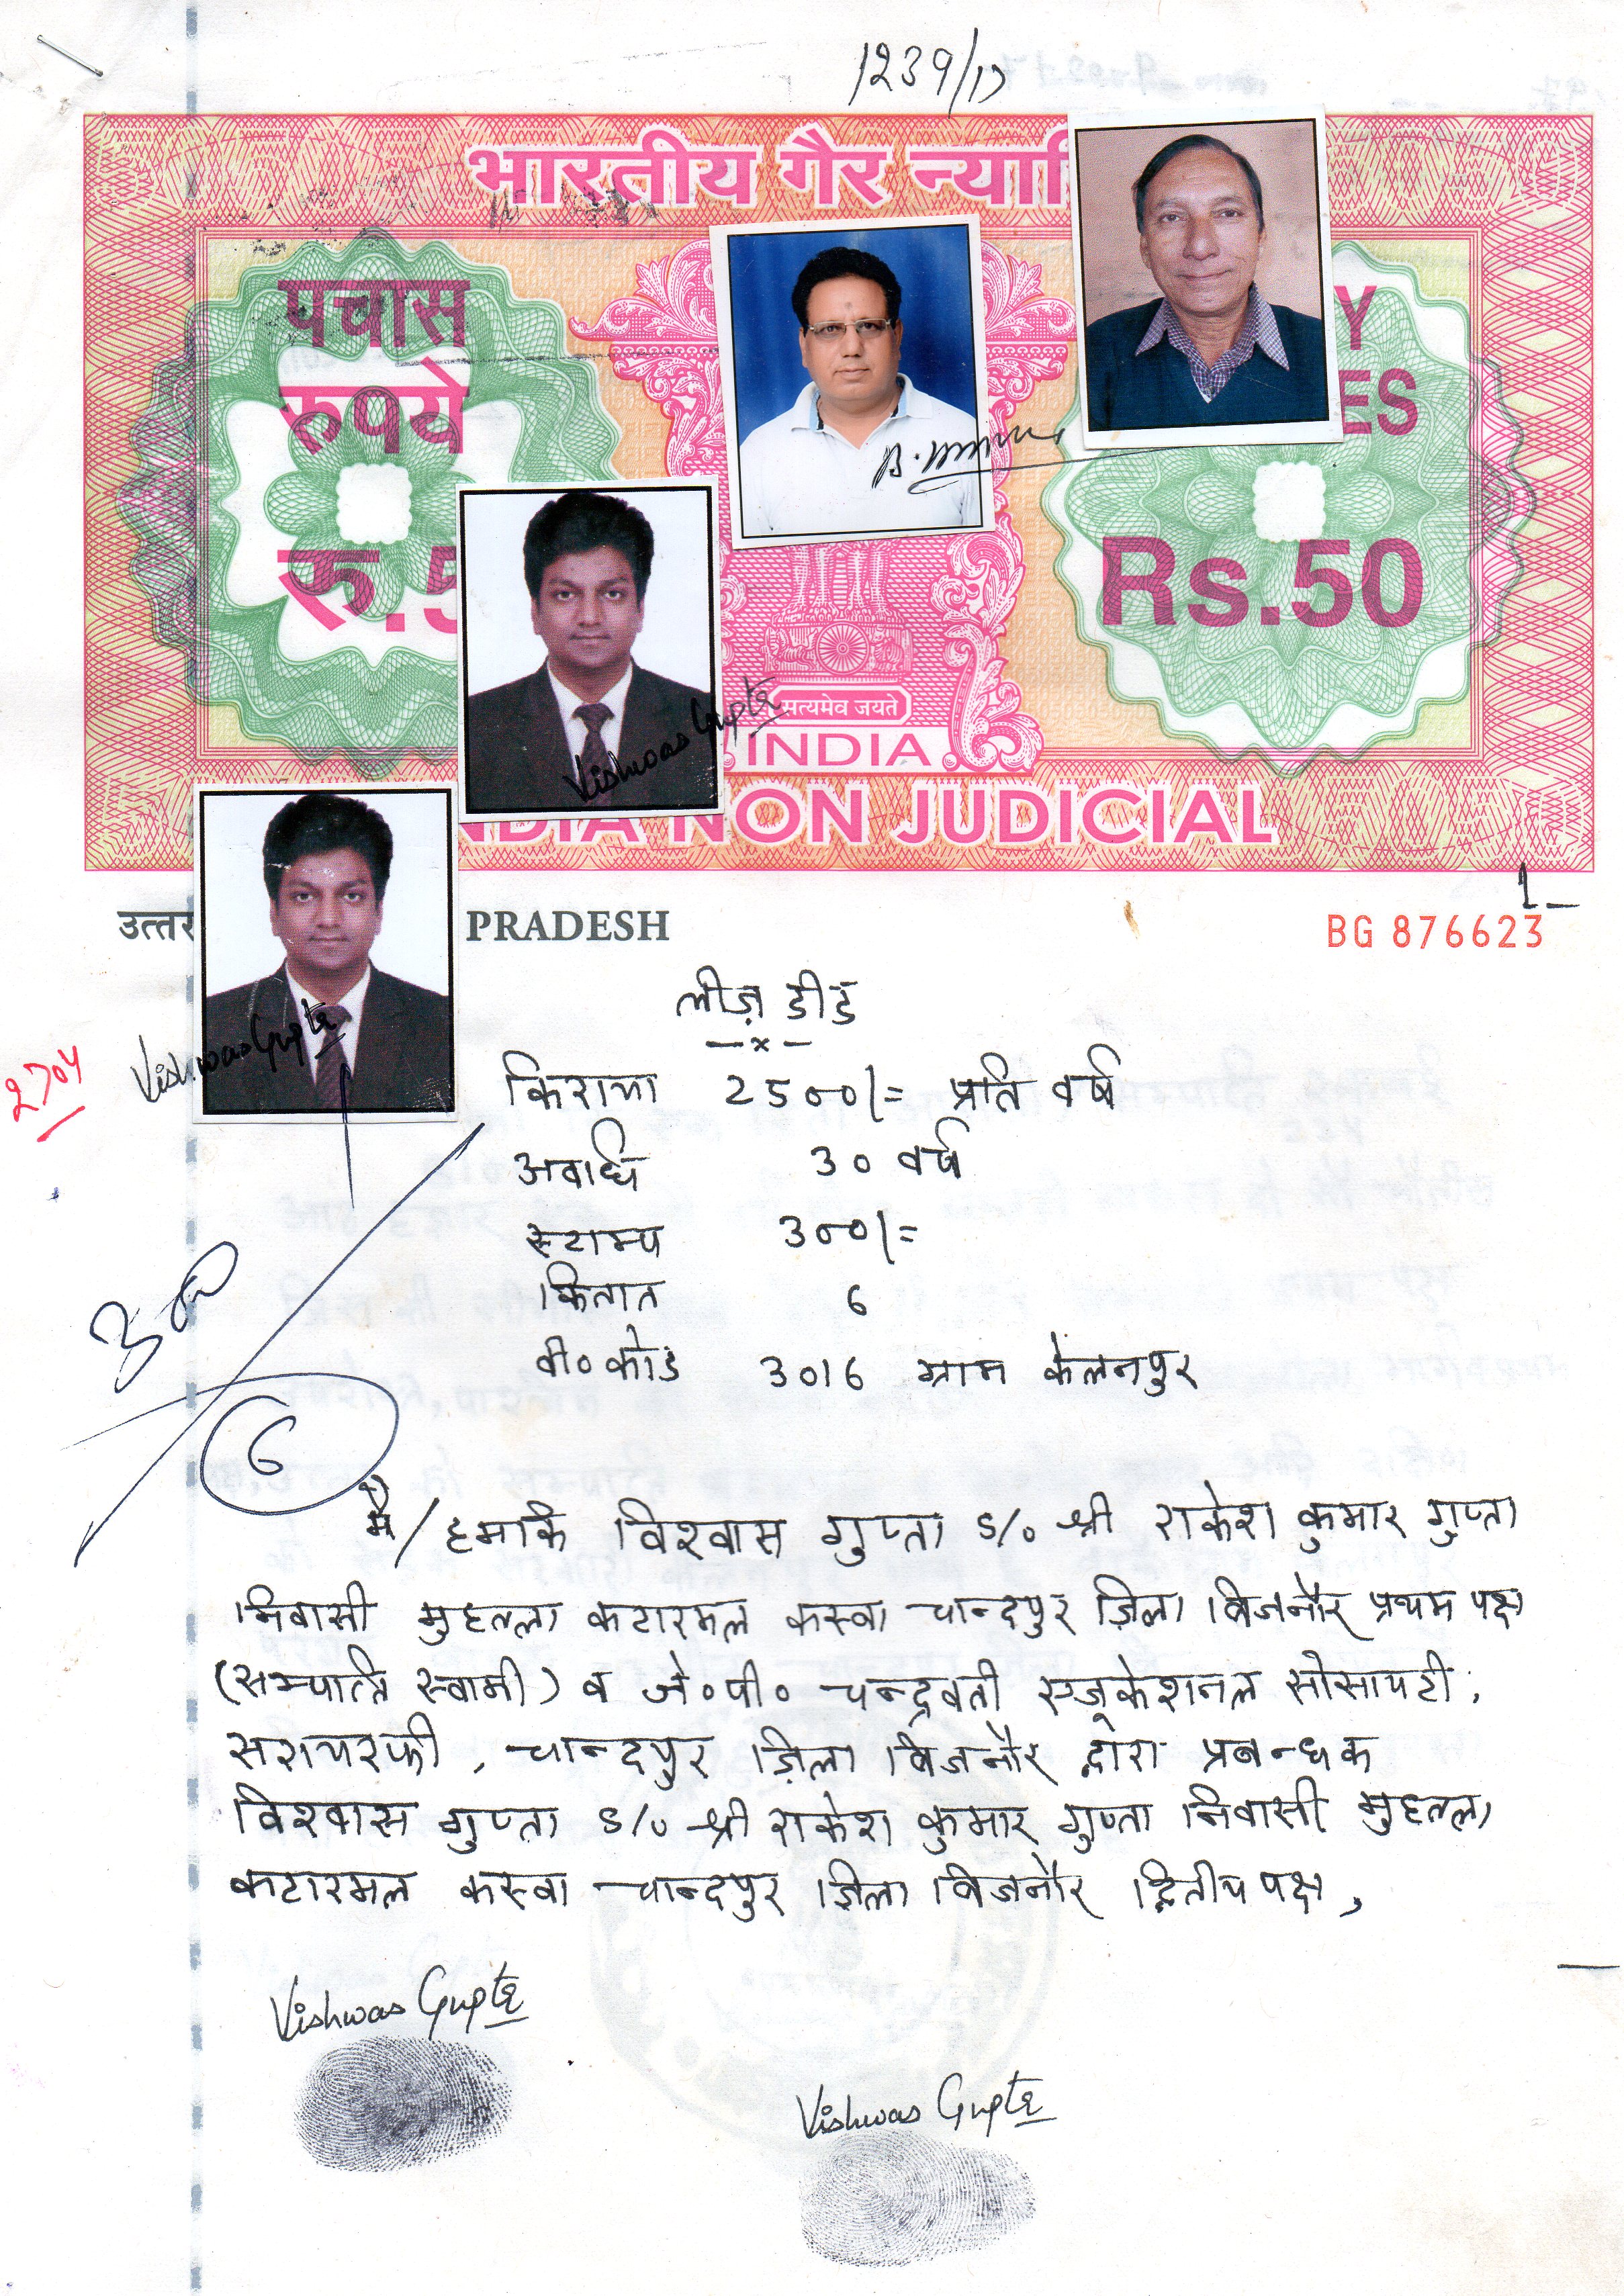 1239/17
भारतीय गैर न्यायि
पचास
रुपये
रु.5
Y
ES
Rs.50
सत्यमेव जयते
INDIA
Vishwas Gupta
NDIA NON JUDICIAL
1
उत्तर PRADESH
BG 876623
Vishwas Gupta
2704
लीज़ डीड
—x—
किराया 2500/= प्रति वर्ष
अवधि 30 वर्ष
स्टाम्प 300/=
कितात 6
वी० कोड 3016 ग्राम केलनपुर
6
मै/हमकि विश्वास गुप्ता s/o श्री राकेश कुमार गुप्ता
निवासी मुहल्ला कटारमल कस्बा चान्दपुर ज़िला बिजनौर प्रथम पक्ष
(सम्पत्ति स्वामी) व जे०पी० चन्द्रवती एजूकेशनल सोसायटी,
सरायरफी, चान्दपुर ज़िला बिजनौर द्वारा प्रबन्धक
विश्वास गुप्ता s/o श्री राकेश कुमार गुप्ता निवासी मुहल्ला
कटारमल कस्बा चान्दपुर ज़िला बिजनौर द्वितीय पक्ष,
Vishwas Gupta
Vishwas Gupta